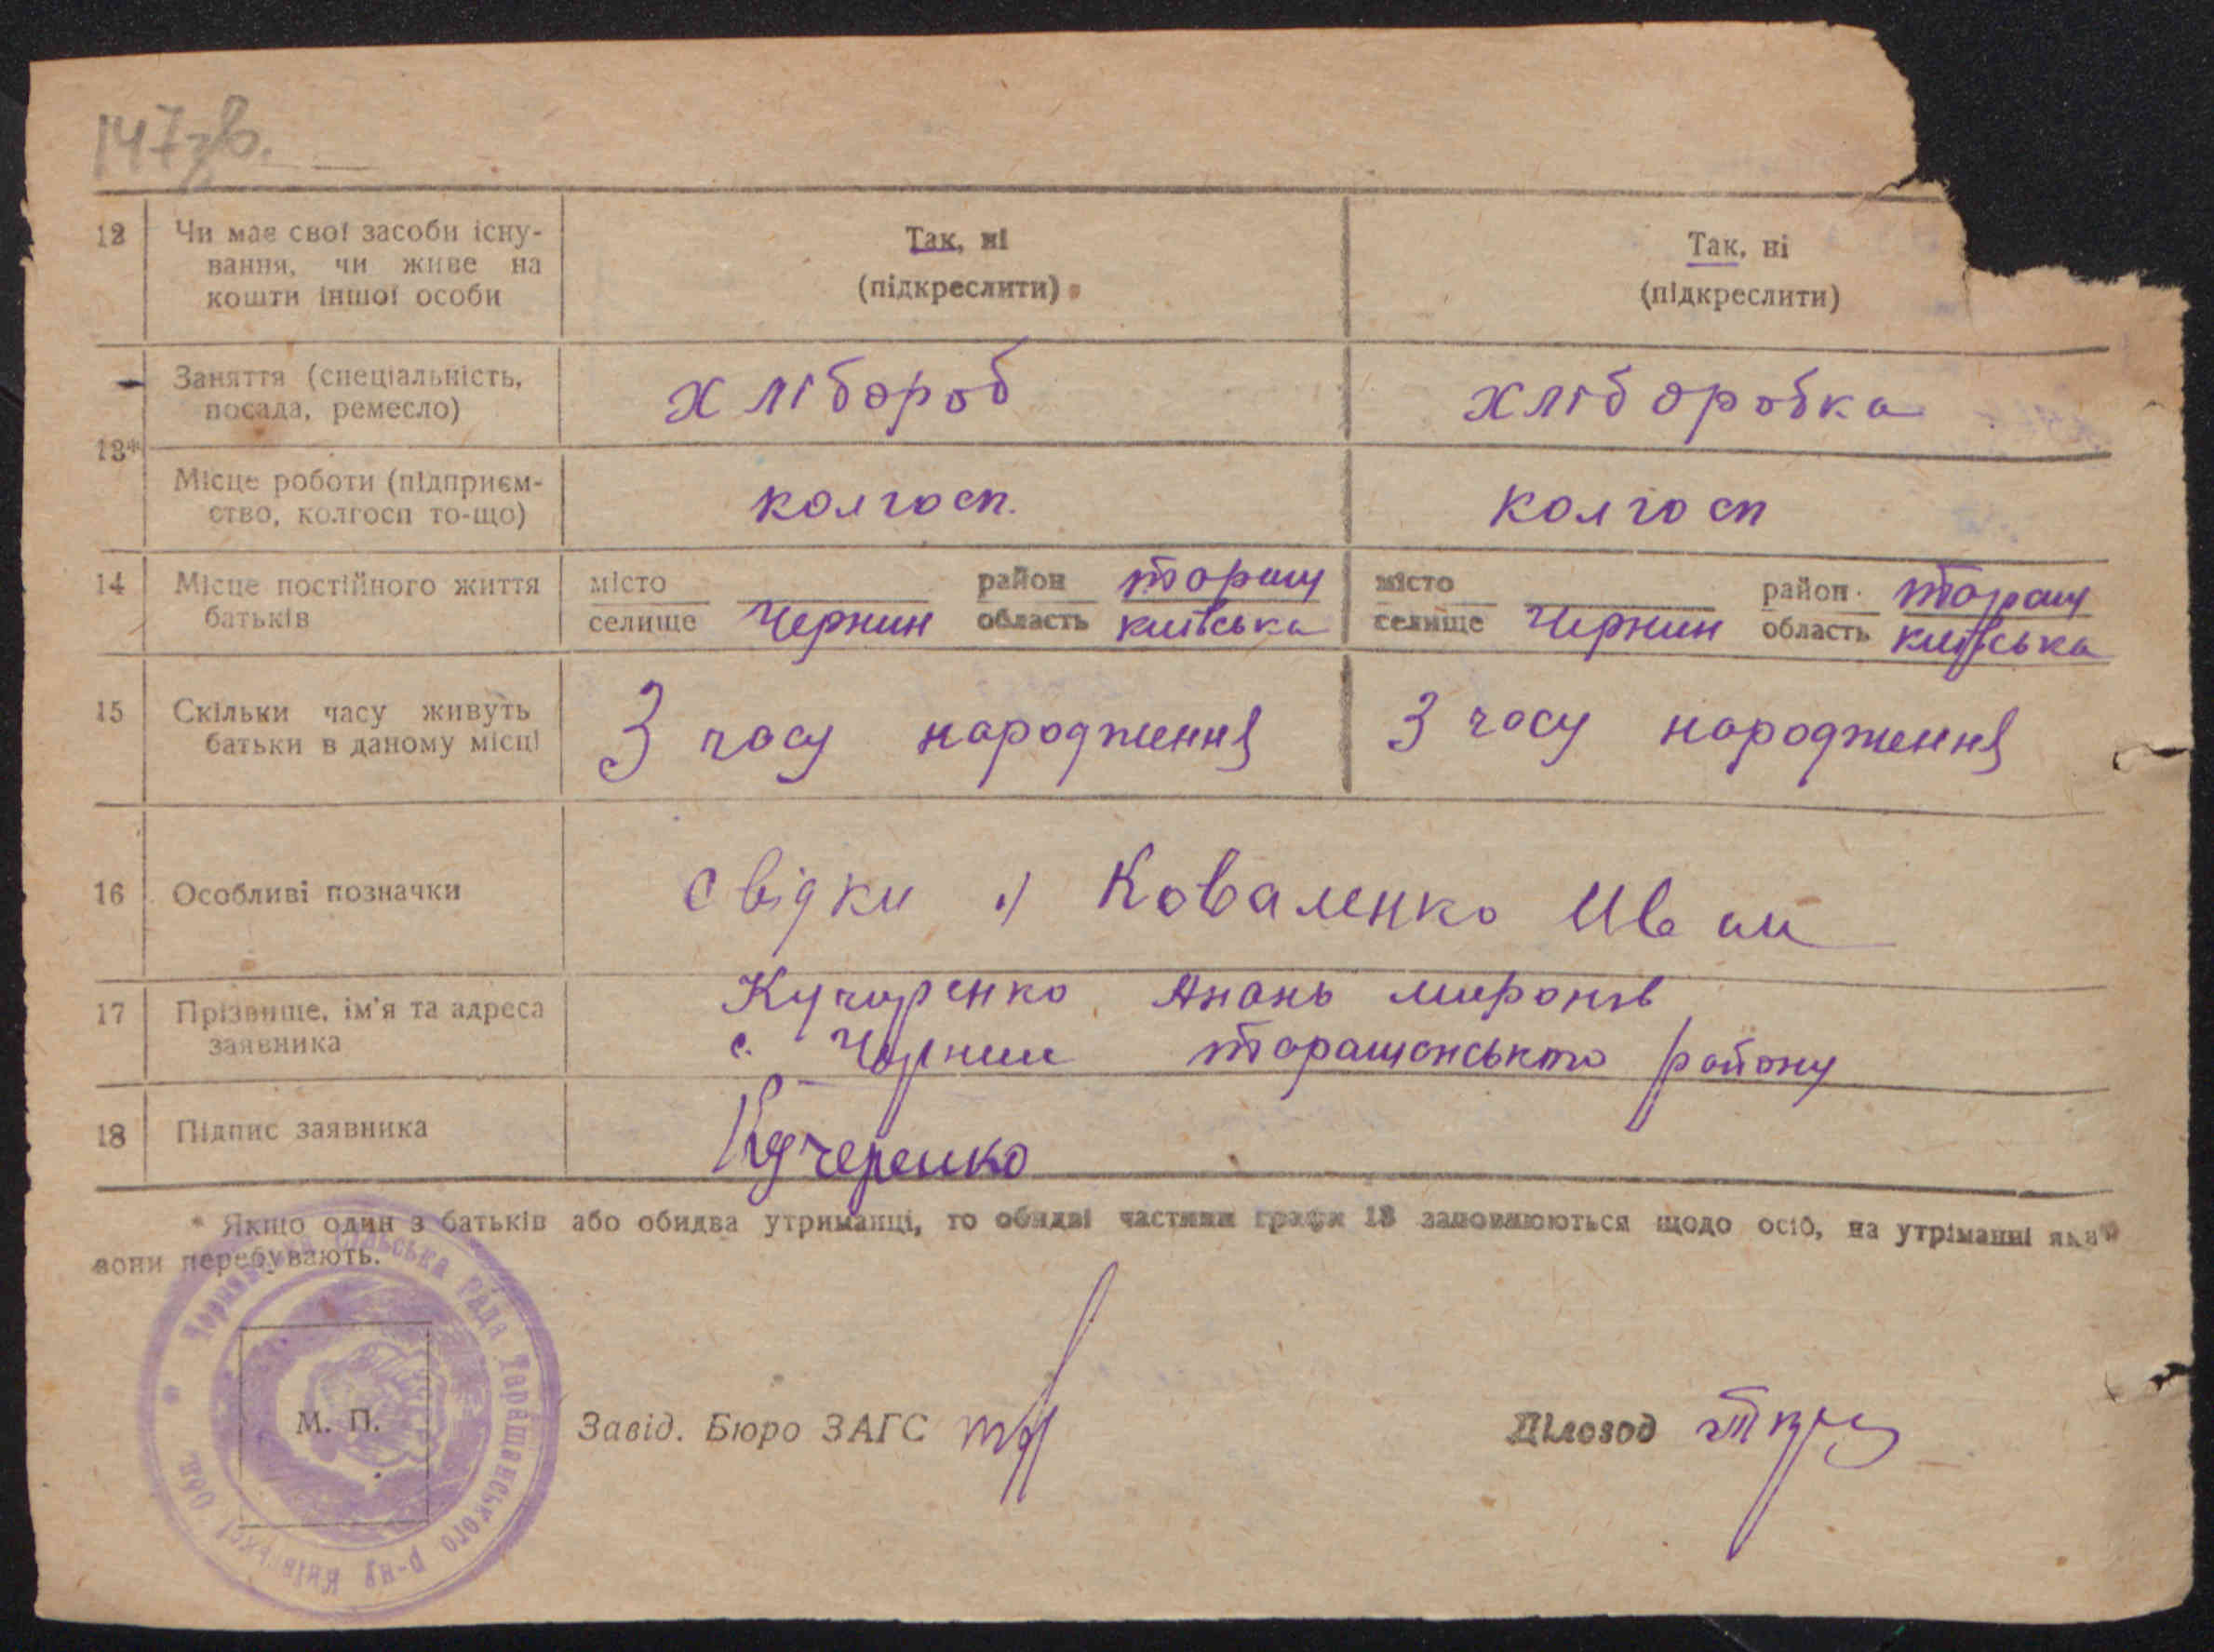 147 зв.
12 Чи має свої засоби існу-
вання, чи живе на
кошти іншої особи
Так, ні
(підкреслити)
Так, ні
(підкреслити)
13*
Заняття (спеціальність,
посада, ремесло)
хлібороб
хліборобка
Місце роботи (підприєм-
ство, колгосп то-що)
колгосп.
колгосп
14 Місце постійного життя
батьків
місто
селище Чернин
район Таращ
область київська
місто
селище Чернин
район Таращ
область київська
15 Скільки часу живуть
батьки в даному місці
З часу народження
З часу народження
16 Особливі позначки
свідки 1) Коваленко Иван
17 Прізвище, ім'я та адреса
заявника
Кучеренко Анань миронів
с. Чернин таращанського району
18 Підпис заявника
Кучеренко
* Якщо один з батьків або обидва утриманці, то обидві частини графи 13 заповнюються щодо осіб, на утріманні яких
вони перебувають.
сільська рада Таращанського р-ну Київської обл.
М. П.
Завід. Бюро ЗАГС
Діловод